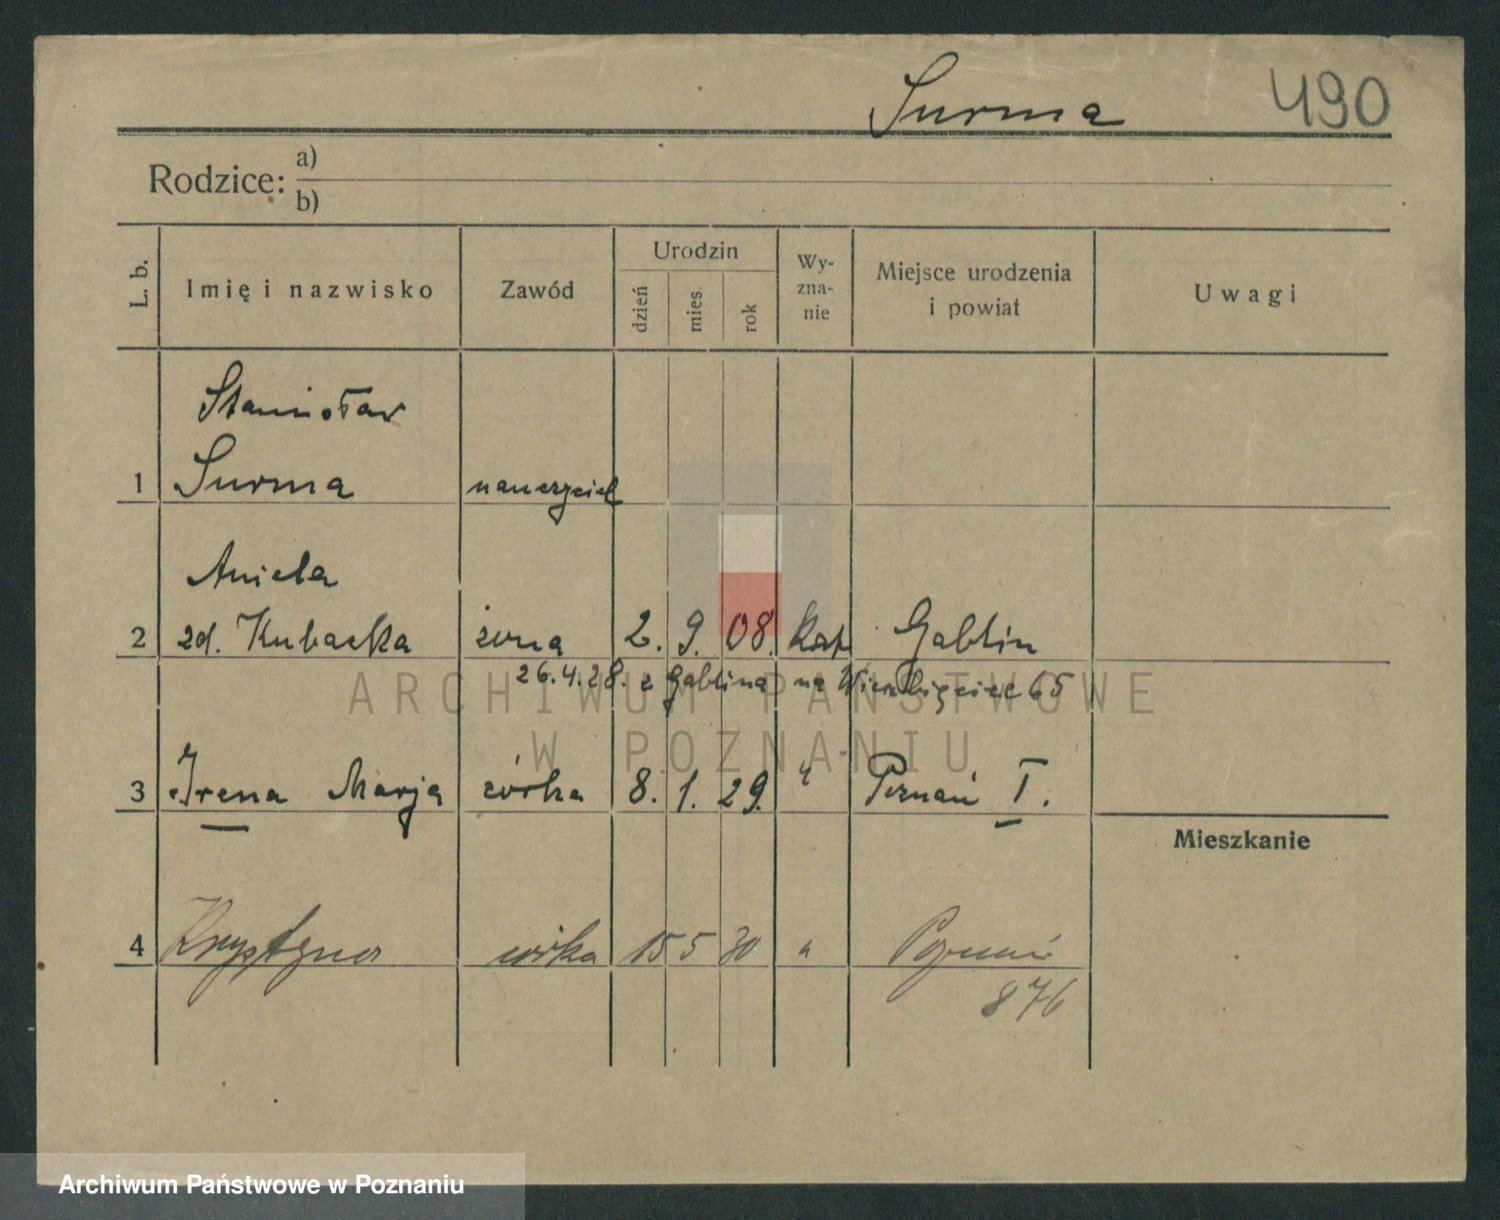 Surma 490
Rodzice: a)
b)
L. b. Imię i nazwisko Zawód Urodzin dzień mies. rok Wy-zna-nie Miejsce urodzenia i powiat Uwagi
Stanisław
1 Surma nauczyciel
Aniela
2 zd. Kubacka żona 2. 9. 08. kat Gablin
26.4.28. z Gablina na Wierzbięcice 65
3 Irena Marja córka 8. 1. 29. " Poznań I.
Mieszkanie
4 Krystyna córka 15 5 30 " Poznań
876
ARCHIWUM PAŃSTWOWE
W POZNANIU
Archiwum Państwowe w Poznaniu